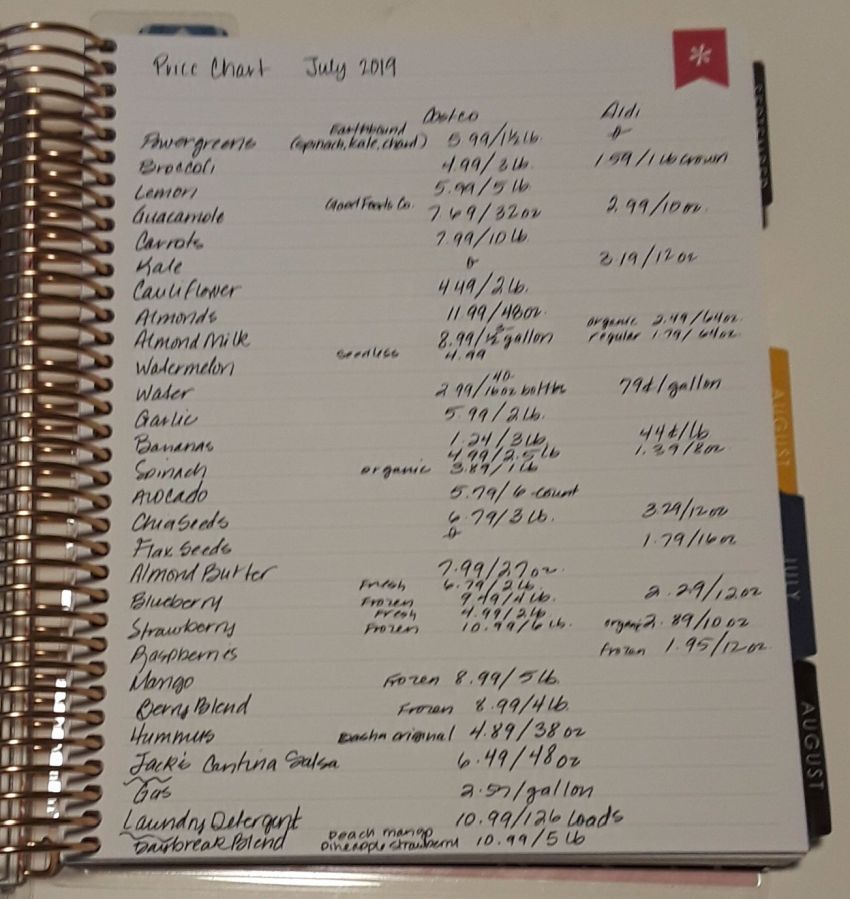 Price Chart July 2019
Costco Aldi
Powergreens Earthbound (spinach, kale, chard) 5.99/1½ lb. ∅
Broccoli 4.99/3 lb. 1.59/1 lb crown
Lemon 5.99/5 lb.
Guacamole Good Foods Co. 7.69/32 oz 2.99/10 oz.
Carrots 7.99/10 lb.
Kale ∅ 3.19/12 oz
Cauliflower 4.49/2 lb.
Almonds 11.99/48 oz.
Almond Milk 8.99/ gallon organic 2.49/64 oz. regular 1.79/64 oz.
Watermelon seedless 4.99
Water 2.99/40- 16 oz bottles 79¢/gallon
Garlic 5.99/2 lb.
Bananas 1.24/3 lb 44¢/lb
Spinach 4.99/2.5 lb 1.39/8 oz.
organic 3.89/1 lb
Avocado 5.79/6-count
Chia Seeds 6.79/3 lb. 3.29/12 oz
Flax Seeds ∅ 1.79/16 oz
Almond Butter 7.99/27 oz.
Blueberry Fresh 6.79/2 lb. 2.29/12 oz
Frozen 9.49/4 lb.
Strawberry Fresh 4.99/2 lb. organic 2.89/10 oz
Frozen 10.99/6 lb.
Raspberries frozen 1.95/12 oz.
Mango Frozen 8.99/5 lb.
Berry Blend Frozen 8.99/4 lb.
Hummus original 4.89/38 oz
Jack's Cantina Salsa 6.49/48 oz
Gas /gallon
Laundry Detergent 10.99/126 loads
Daybreak Blend peach mango pineapple strawberry 10.99/5 lb
AUGUST
JULY
AUGUST